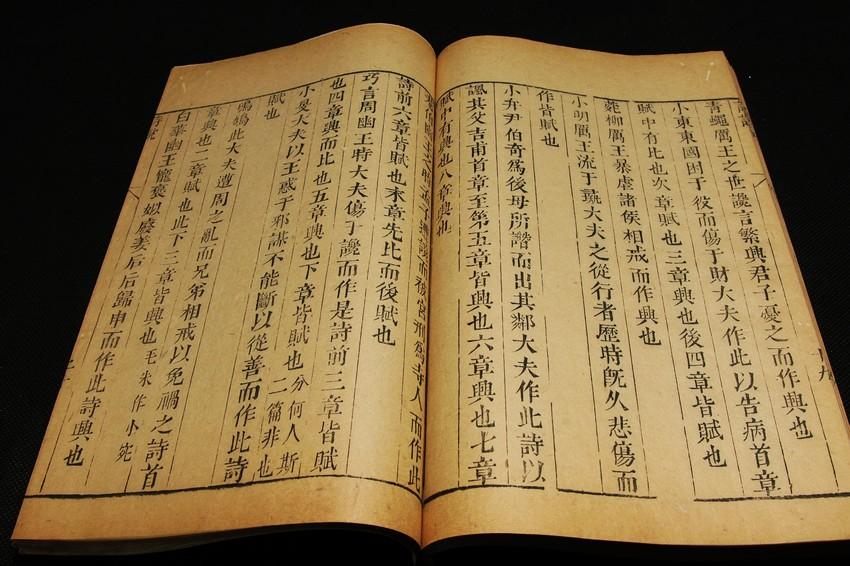 青蠅厲王之世讒言繁興君子憂之而作興也
小東東國困于役而傷于財大夫作此以告病首章
賦中有比也次章賦也三章興也後四章皆賦也
菀柳厲王暴虐諸侯相戒而作興也
小明厲王流于彘大夫之從行者歷時旣久悲傷而
作皆賦也
小弁尹伯奇爲後母所譖而出其鄰大夫作此詩以
諷其父吉甫首章至第五章皆興也六章興也七章
賦中有興也八章興也
巷伯幽王之時孟子遭讒而被宮刑爲寺人而作此
詩前六章皆賦也末章先比而後賦也
巧言周幽王時大夫傷于讒而作是詩前三章皆賦
也四章興而比也五章興也下章皆賦也分何人斯二篇非也
小旻大夫以王惑于邪謀不能斷以從善而作此詩
賦也
鳴鳩此大夫遭周之亂而兄弟相戒以免禍之詩首
章興也二章賦也此下三章皆興也毛朱作小宛
白華幽王寵褒姒廢姜后后歸申而作此詩興也